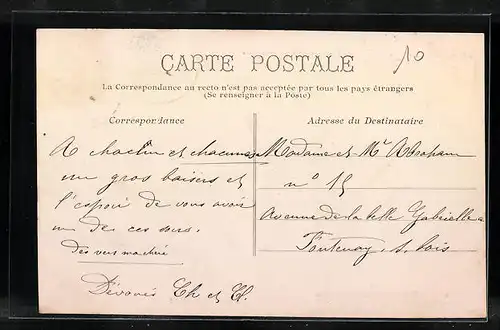 10
CARTE POSTALE
La Correspondance au recto n'est pas acceptée par tous les pays étrangers
(Se renseigner à la Poste)
Correspondance
Adresse du Destinataire
A chacun et chacune
un gros baisers et
l'espoir de vous avoir
un de ces jours.
Dévoués Ch et
Madame et Mr Abraham
n° 15
Avenue de la belle Gabrielle
Fontenay s. bois